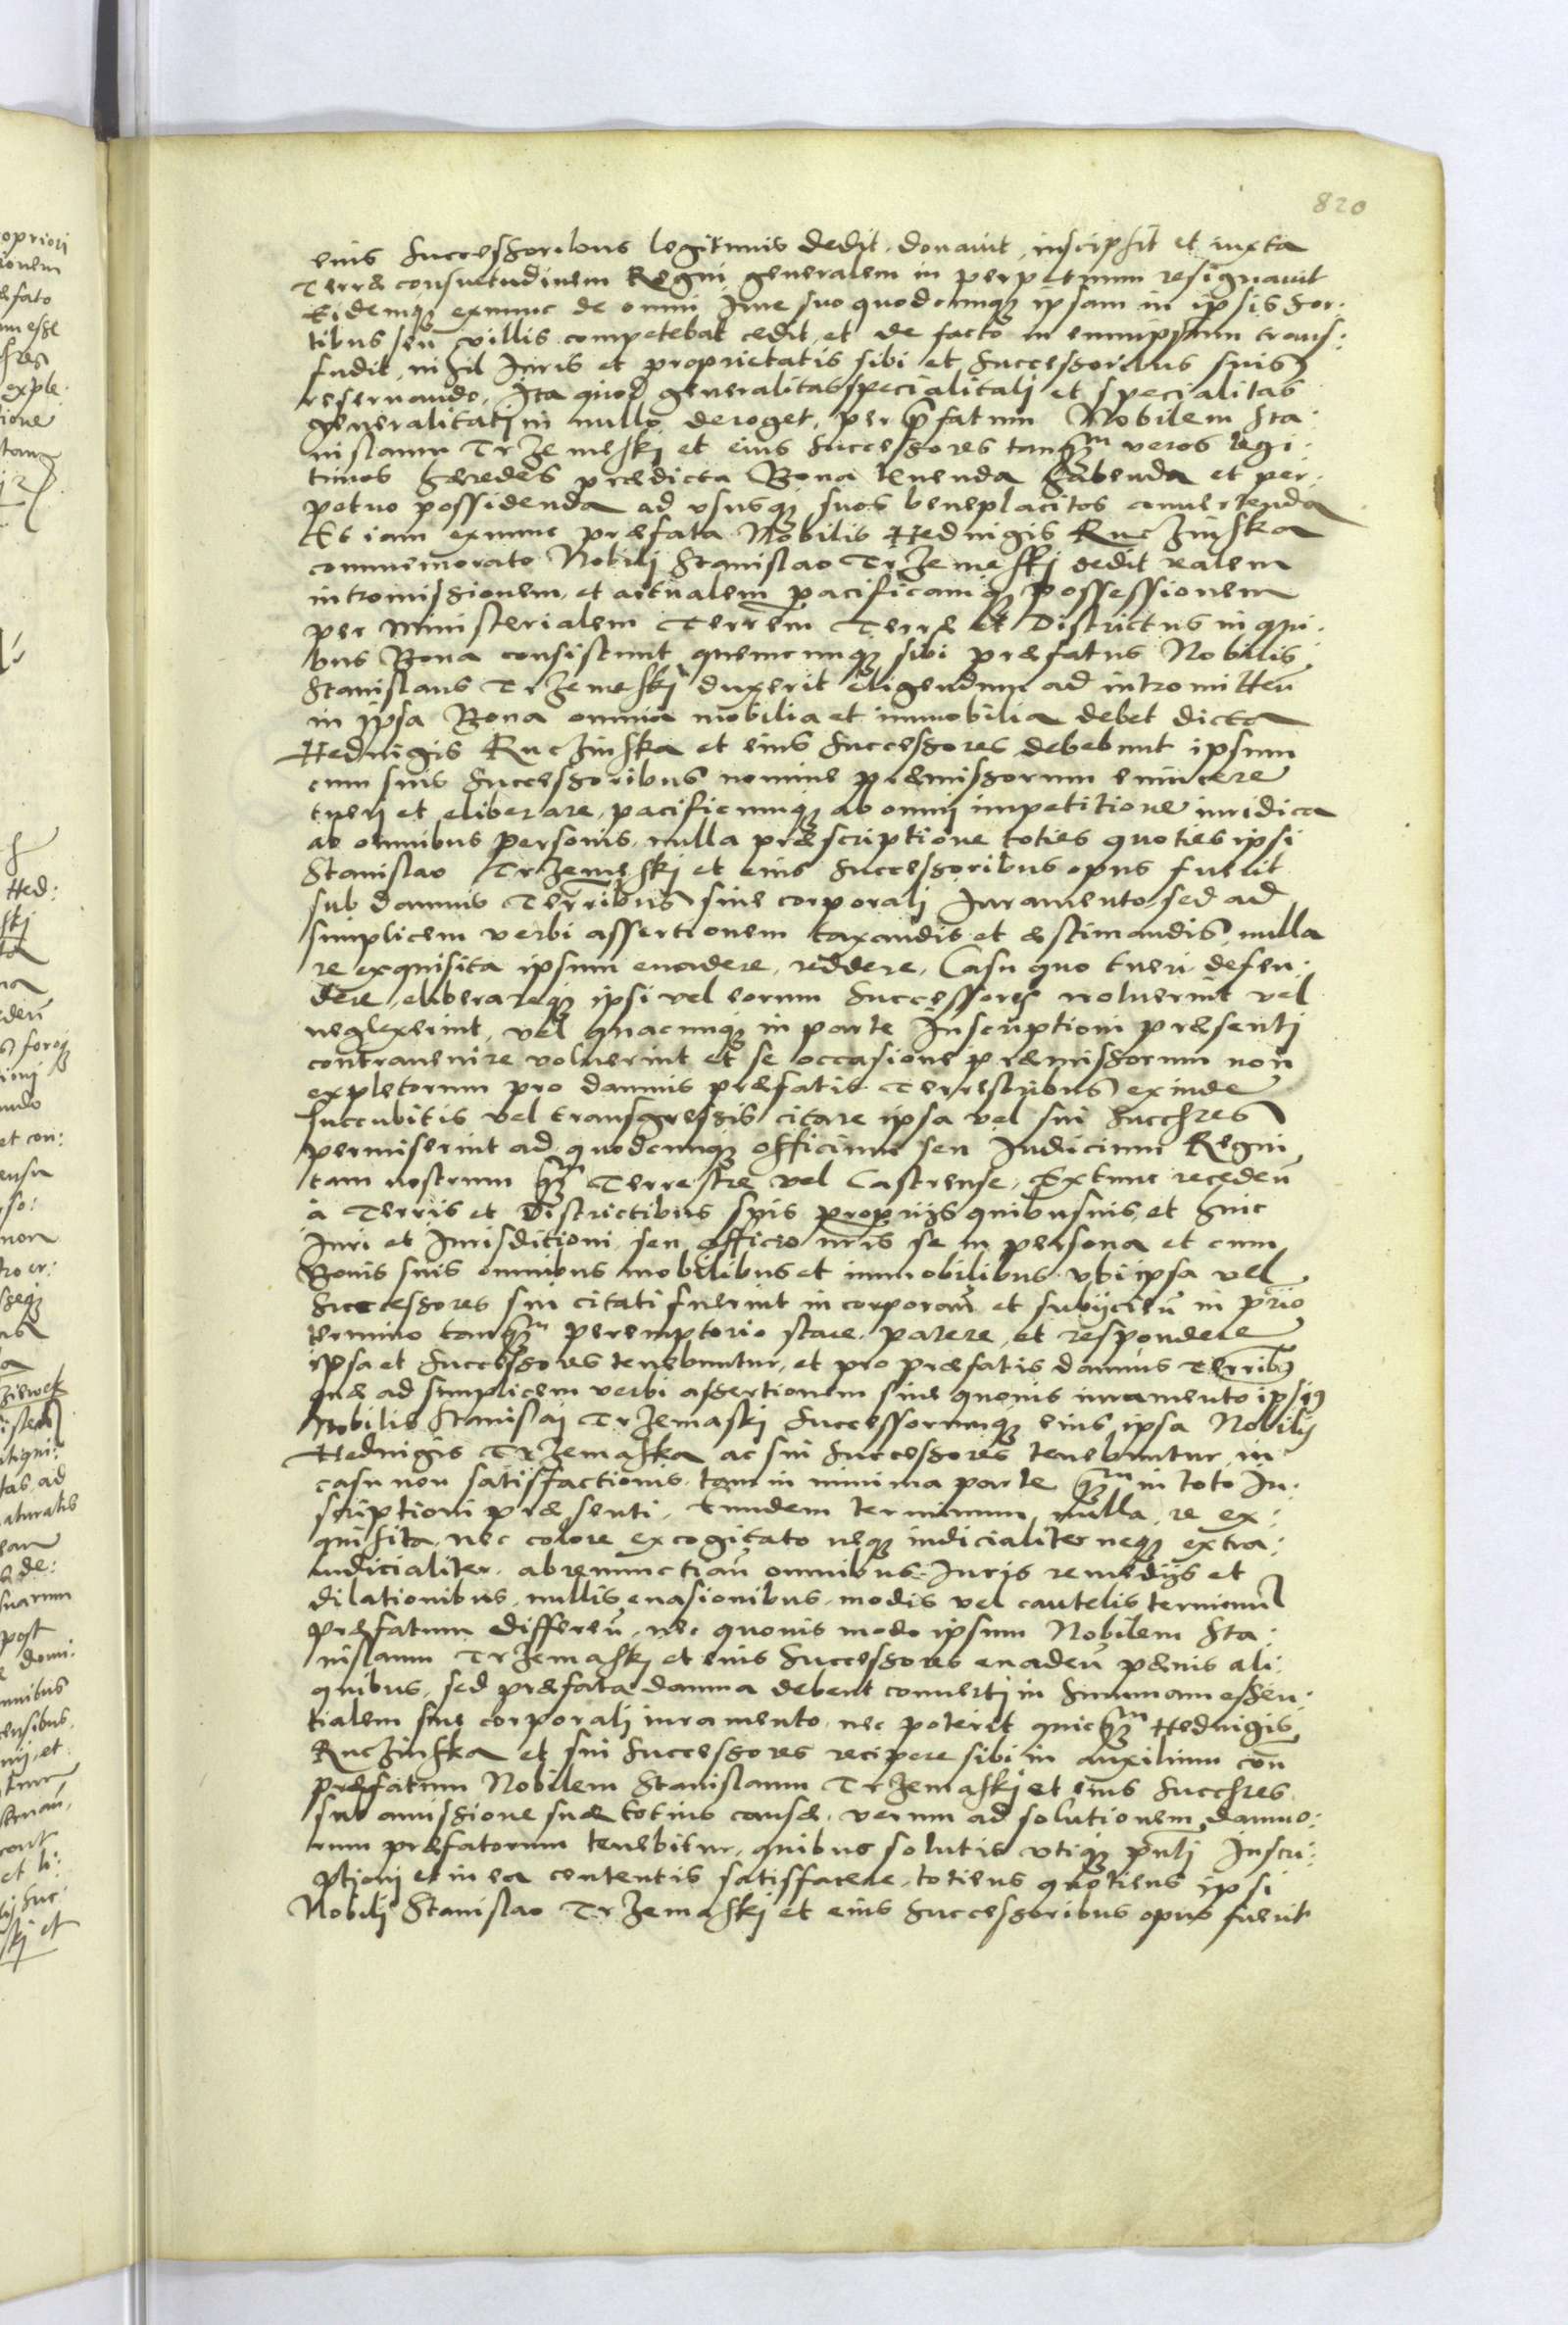 820
eius Successoribus legitimis dedit. donauit, inscripsit et iuxta
Terræ consuetudinem Regni generalem in perpetuum resignauit
Eidemq3 exnunc de omni Iure suo quodcunq3 ipsam in ipsis sor:
tibus seu villis competebat cedit, et de facto in eumipsum trans:
fudit, nihil Iuris et proprietatis sibi et Successoribus suis
reseruando. Ita quod generalitas specialitati et specialitas
generalitati in nullo deroget, per p̃fatum Nobilem Sta:
nislaum Trzemeskj et eius Successores tanq̃m veros legi:
timos hæredes prædicta Bona tenenda habenda et per:
petuo possidenda ad vsusq3 suos beneplacitos conuertenda
Et iam exnunc præfata Nobilis Hedvigis Ruczinska
commemorato Nobilj Stanislao Trzemeskj dedit realem
intromissionem, et actualem pacificamq3 possessionem
per Ministerialem Terrem Terræ et Districtus in qui:
bus Bona consistunt quemcunq3 sibi præfatus Nobilis
Stanislaus Trzemeskj duxerit eligendum ad intromitteñ
in ipsa Bona omnia mobilia et immobilia debet dicta
Hedvigis Ruczinska et eius Successores debebunt ipsum
cum suis Successoribus nomine præmissorum euincere
tuerj et eliberare, pacificumq3 ab omni impetitione iuridica
ab omnibus personis, nulla præscriptione toties quoties ipsi
Stanislao Trzemeskj et eius Successoribus opus fuerit
sub damnis Terribus sine corporali Iuramento, sed ad
simplicem verbi assertionem taxandis et æstimandis, nulla
re exquisita ipsum euadere, reddere, Casu quo tueri defen:
dere, eliberareq3 ipsi vel eorum Successores noluerint vel
neglexerint, vel quacunq3 in parte Inscriptioni præsenti
contrauenire voluerint et se occasione præmissorum non
expletorum pro damnis præfatis Terrestribus exinde
succubitis vel transgressis citare ipsa vel sui Succhres
permiserint ad quodcunq3 officium seu Iudicium Regni
tam nostrum q̃ Terrestre vel Castrense, Extunc recedeñ
à Terris et Districtibus suis proprijs quibusuis, et huic
Iuri et Iurisditioni seu officio nr̃is se in persona et cum
Bonis suis omnibus mobilibus et immobilibus vbi ipsa vel
Successores sui citati fuerint incorporañ et subijcieñ in p̃rio
termino tanq̃m peremptorio stare, parere, et respondere
ipsa et Successores tenebuntur, et pro præfatis damnis Terribus
quæ ad simplicem verbi assertionem sine quouis iuramento ipsius
Nobilis Stanislai Trzemaskj Successorumq3 eius ipsa Nobilis
Hedvigis Trzemaska ac sui Successores tenebuntur in
casu non satisfactionis tam in minima parte q̃m in toto In:
scriptioni præsenti. Eundem terminum nulla re ex:
quisita, nec colore excogitato neq3 iudicialiter neq3 extra:
iudicialiter. abrenunctiañ omnibus Iuris remedijs et
dilationibus, nullis euasionibus, modis vel cautelis terminum
præfatum differeñ, nec quouis modo ipsum Nobilem Sta:
nislaum Trzemaskj et eius Successores euadeñ pænis ali:
quibus, sed præfata damna debent conuertj in Summam essen:
tialem sine corporali iuramento, nec poterit quicq̃m Hedvigis
Ruczinska et sui Successores recipere sibi in auxilium con̄
præfatum Nobilem Stanislaum Trzemaskj et eius Succhres
sub amissione suæ totius causæ, verum ad solutionem damno:
rum præfatorum tenebitur, quibus solutis vtiq3 pñti Inscri:
ptioni et in ea contentis satisfacere, totiens quotiens ipsi
Nobilj Stanislao Trzemaskj et eius Successoribus opus fuerit